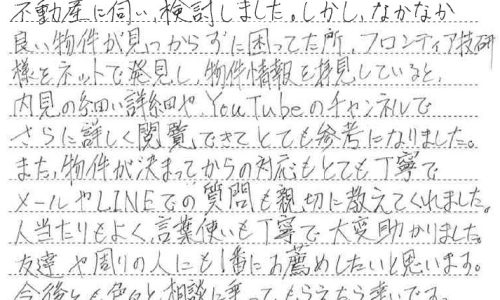 不動産に伺い、検討しました。しかし、なかなか
良い物件が見つからずに困ってた所、フロンティア技研
様をネットで発見し、物件情報を拝見していると、
内見の細い詳細や、YouTubeのチャンネルで
さらに詳しく閲覧できてとても参考になりました。
また、物件が決まってからの対応もとても丁寧で
メールやLINEでの質問も親切に教えてくれました。
人当たりもよく、言葉使いも丁寧で、大変助かりました。
友達や周りの人にも1番にお薦めしたいと思います。
今後とも色々と相談に乗ってもらえたら幸いです。